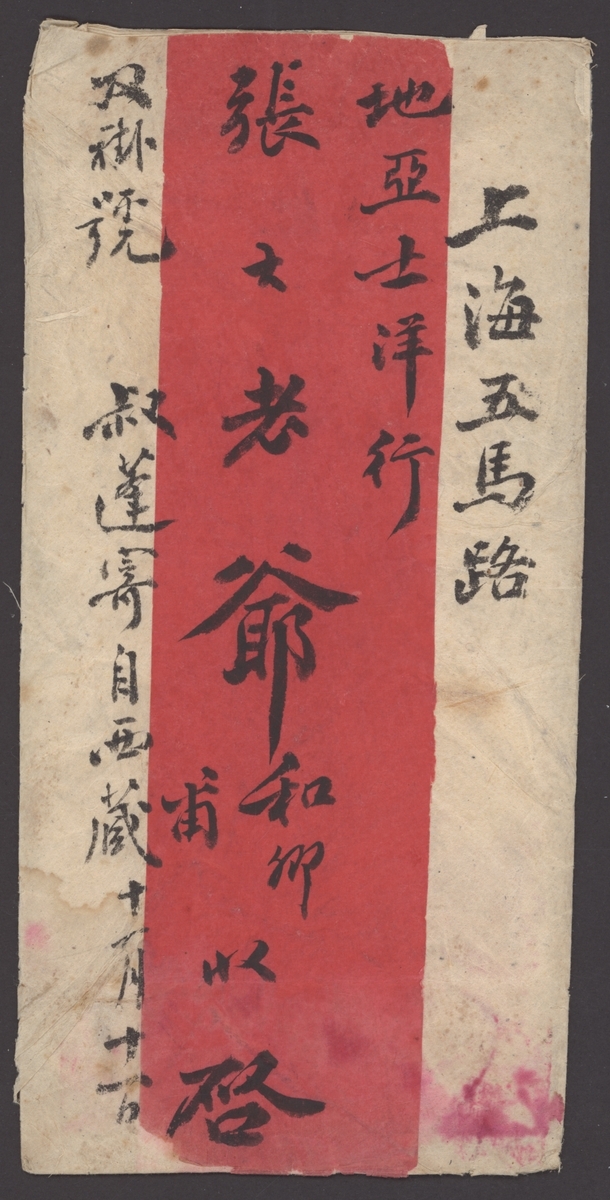 上海五馬路
地亞士洋行
張大老爺和卿甫收啓
双掛號
叔蓬寄自西藏十一月十一日